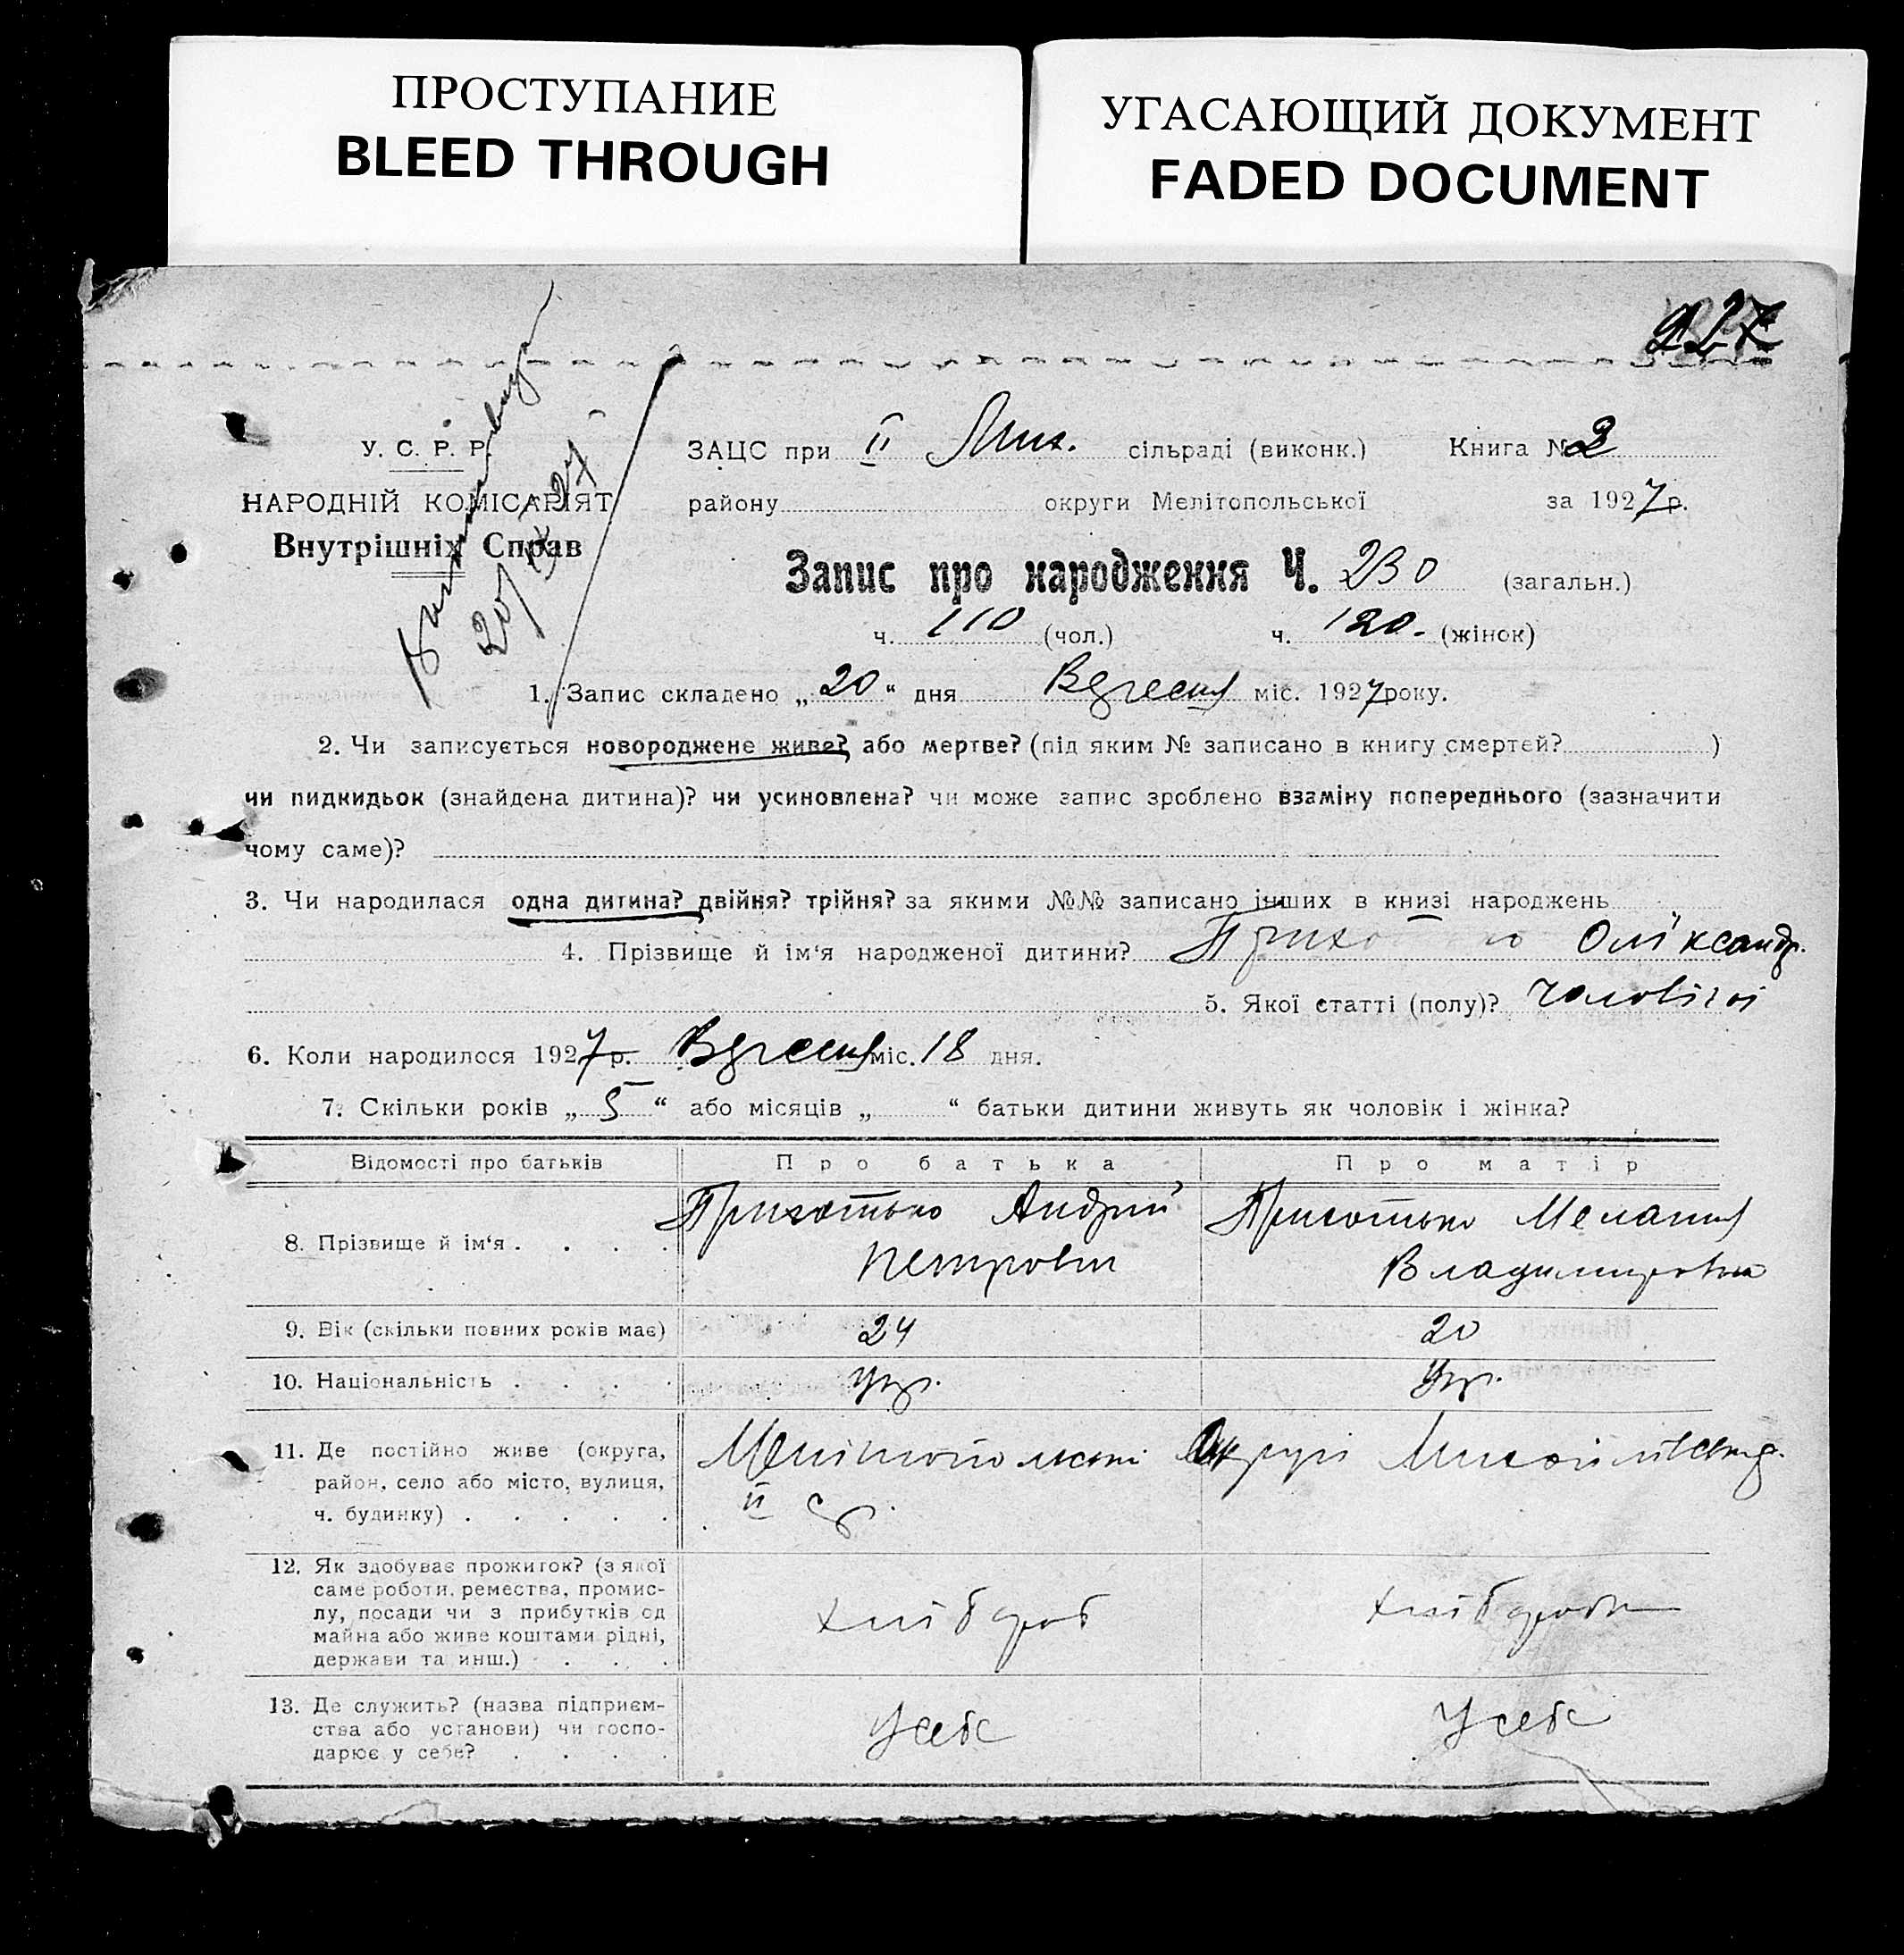 ПРОСТУПАНИЕ
BLEED THROUGH
УГАСАЮЩИЙ ДОКУМЕНТ
FADED DOCUMENT
У. С. Р. Р.
НАРОДНІЙ КОМІСАРІЯТ
Внутрішніх Справ
20/IX 27
ЗАЦС при II Мих. сільраді (виконк.) Книга № 2
району округи Мелітопольської за 1927 р.
Запис про народження Ч. 230 (загальн.)
ч. 110 (чол.) ч. 120. (жінок)
1. Запис складено „20“ дня Вересня міс. 1927 року.
2. Чи записується новороджене живе? або мертве? (під яким № записано в книгу смертей? )
чи пидкидьок (знайдена дитина)? чи усиновлена? чи може запис зроблено взаміну попереднього (зазначити
чому саме)?
3. Чи народилася одна дитина? двійня? трійня? за якими №№ записано інших в книзі народжень
4. Прізвище й ім‘я народженої дитини? Олександр.
5. Якої статті (полу)? чоловічої
6. Коли народилося 1927 р. Вересня міс. 18 дня.
7. Скільки років „5“ або місяців „ “ батьки дитини живуть як чоловік і жінка?
Відомості про батьків Про батька Про матір
8. Прізвище й ім‘я . . . . Прихотько Андрій Прихотько Меланія
Петрович Владимировна
9. Вік (скільки повних років має) 24 20
10. Національність . . . . Укр. Укр.
11. Де постійно живе (округа, Мелітопольскої Округи Михайлівськ р.
район, село або місто, вулиця, II
ч. будинку) . . . . .
12. Як здобуває прожиток? (з якої
саме роботи, ремества, промис-
лу, посади чи з прибутків од хлібороб хлібороб
майна або живе коштами рідні,
держави та инш.) . . . .
13. Де служить? (назва підприєм-
ства або установи) чи госпо- У себе У себе
дарює у себе? . . . .